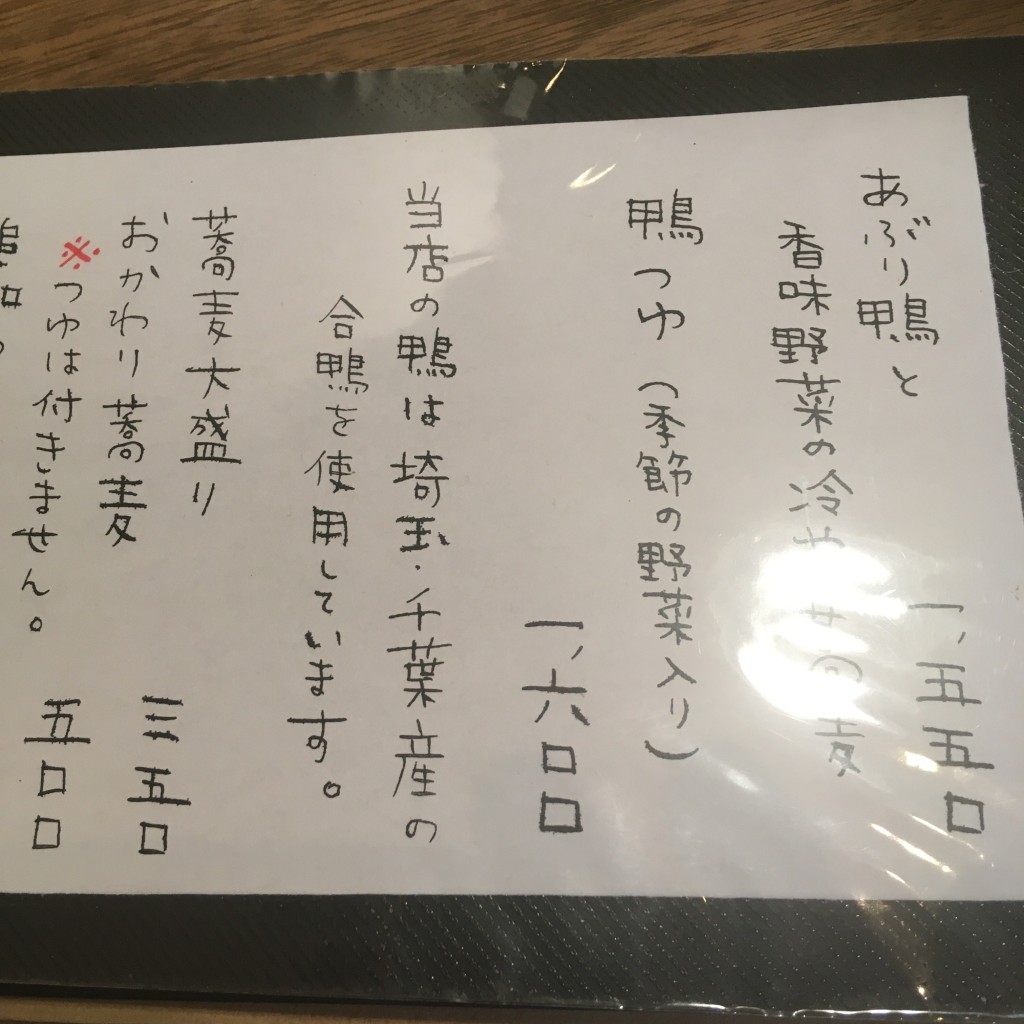 あぶり鴨と
香味野菜の冷や
麦
一、五五〇
鴨つゆ(季節の野菜入り)
一、六〇〇
当店の鴨は埼玉・千葉産の
合鴨を使用しています。
蕎麦大盛り
三五〇
おかわり蕎麦
※つゆは付きません。
五〇〇